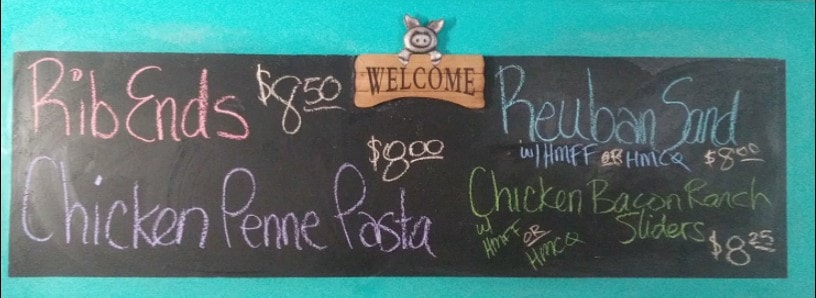 Rib Ends $8.50
WELCOME
Reuban Sand
w/ HMFF OR HMCQ $8.00
$8.00
Chicken Penne Pasta
Chicken Bacon Ranch
Sliders
w/ HMFF OR HMCQ
$8.25